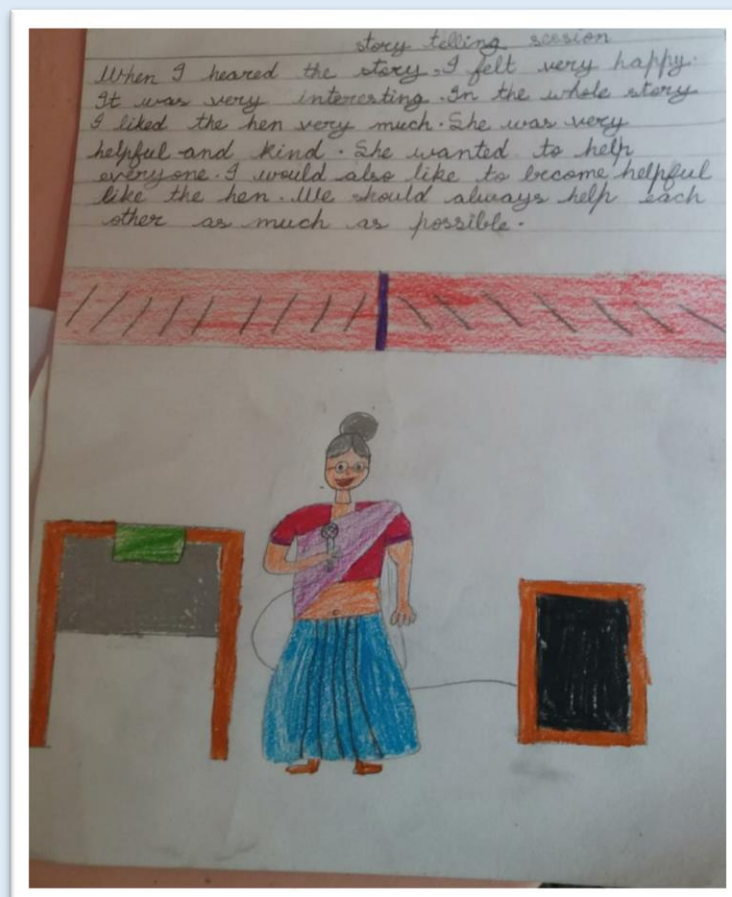 story telling session
When I heared the story. I felt very happy.
It was very interesting. In the whole story
I liked the hen very much. She was very
helpful and kind. She wanted to help
everyone. I would also like to become helpful
like the hen. We should always help each
other as much as possible.